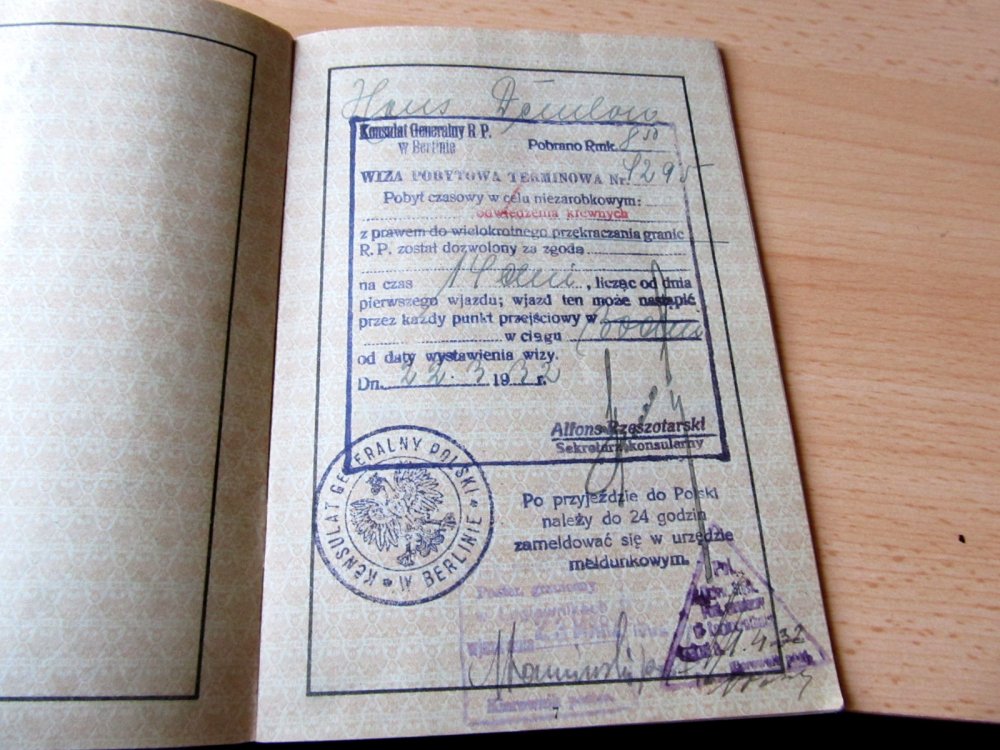 Hans
Konsulat Generalny R. P.
w Berlinie
Pobrano Rmk. 8 50
WIZA POBYTOWA TERMINOWA Nr. 5295
Pobyt czasowy w celu niezarobkowym:
odwiedzenia krewnych
z prawem do wielokrotnego przekraczania granic
R. P. został dozwolony za zgodą
na czas 14 dni, licząc od dnia
pierwszego wjazdu; wjazd ten może nastąpić
przez każdy punkt przejściowy w
w ciągu
od daty wystawienia wizy.
Dn. 22. 3 1932 r.
Alfons Rzeszotarski
Sekretarz konsularny
KONSULAT GENERALNY POLSKI W BERLINIE
Po przyjeździe do Polski
należy do 24 godzin
zameldować się w urzędzie
meldunkowym.
Poster. graniczny
Kierownik
4.32
7